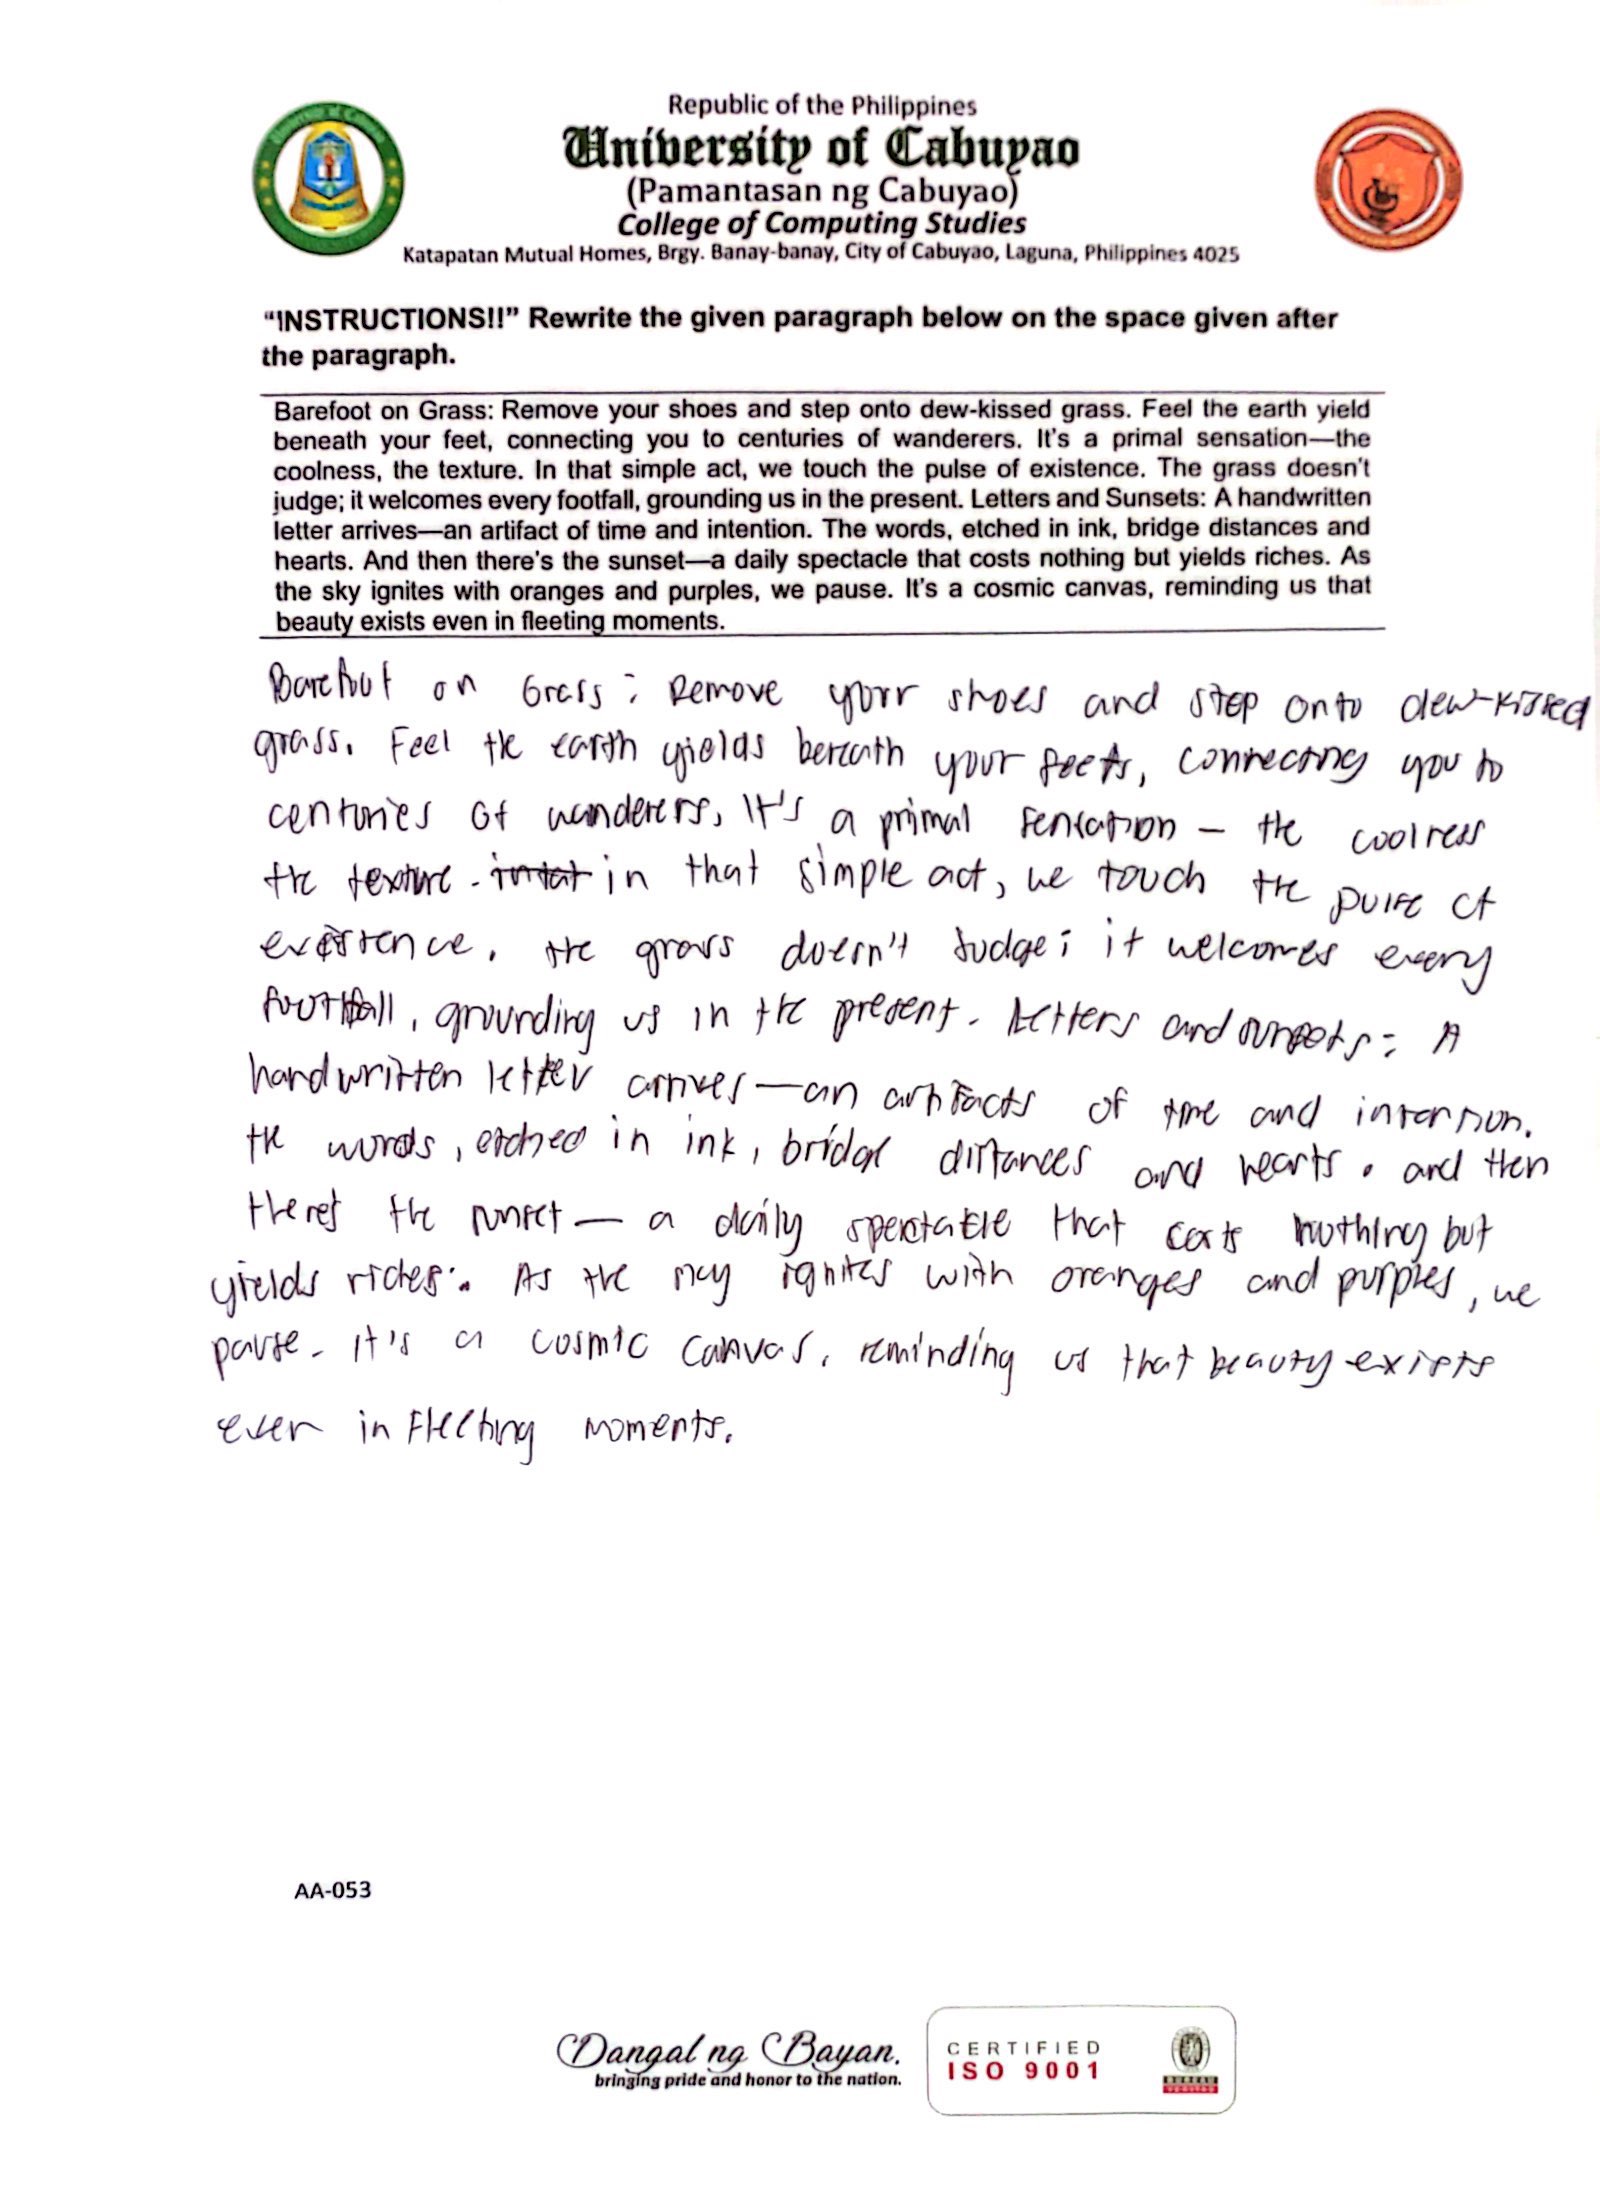 Republic of the Philippines
University of Cabuyao
(Pamantasan ng Cabuyao)
College of Computing Studies
Katapatan Mutual Homes, Brgy. Banay-banay, City of Cabuyao, Laguna, Philippines 4025
“INSTRUCTIONS!!” Rewrite the given paragraph below on the space given after
the paragraph.
Barefoot on Grass: Remove your shoes and step onto dew-kissed grass. Feel the earth yield
beneath your feet, connecting you to centuries of wanderers. It's a primal sensation—the
coolness, the texture. In that simple act, we touch the pulse of existence. The grass doesn't
judge; it welcomes every footfall, grounding us in the present. Letters and Sunsets: A handwritten
letter arrives—an artifact of time and intention. The words, etched in ink, bridge distances and
hearts. And then there's the sunset—a daily spectacle that costs nothing but yields riches. As
the sky ignites with oranges and purples, we pause. It's a cosmic canvas, reminding us that
beauty exists even in fleeting moments.
Barefoot on Grass: Remove your shoes and step onto dew-kissed
grass. Feel the earth yields beneath your feets, connecting you to
centuries of wanderers, It's a primal sensation — the coolness
the texture. in that simple act, we touch the pulse of
existence. the grass doesn't judge; it welcomes every
footfall, grounding us in the present. Letters and sunsets: A
handwritten letter arrives — an artifacts of time and intention.
the words, etched in ink, bridal distances and hearts. and then
there's the sunset — a daily spectacle that costs nothing but
yields riches. As the sky ignites with oranges and purples, we
pause. It's a cosmic canvas, reminding us that beauty exists
even in Fleeting moments.
AA-053
Dangal ng Bayan.
bringing pride and honor to the nation.
CERTIFIED
ISO 9001
BUREAU
VERITAS